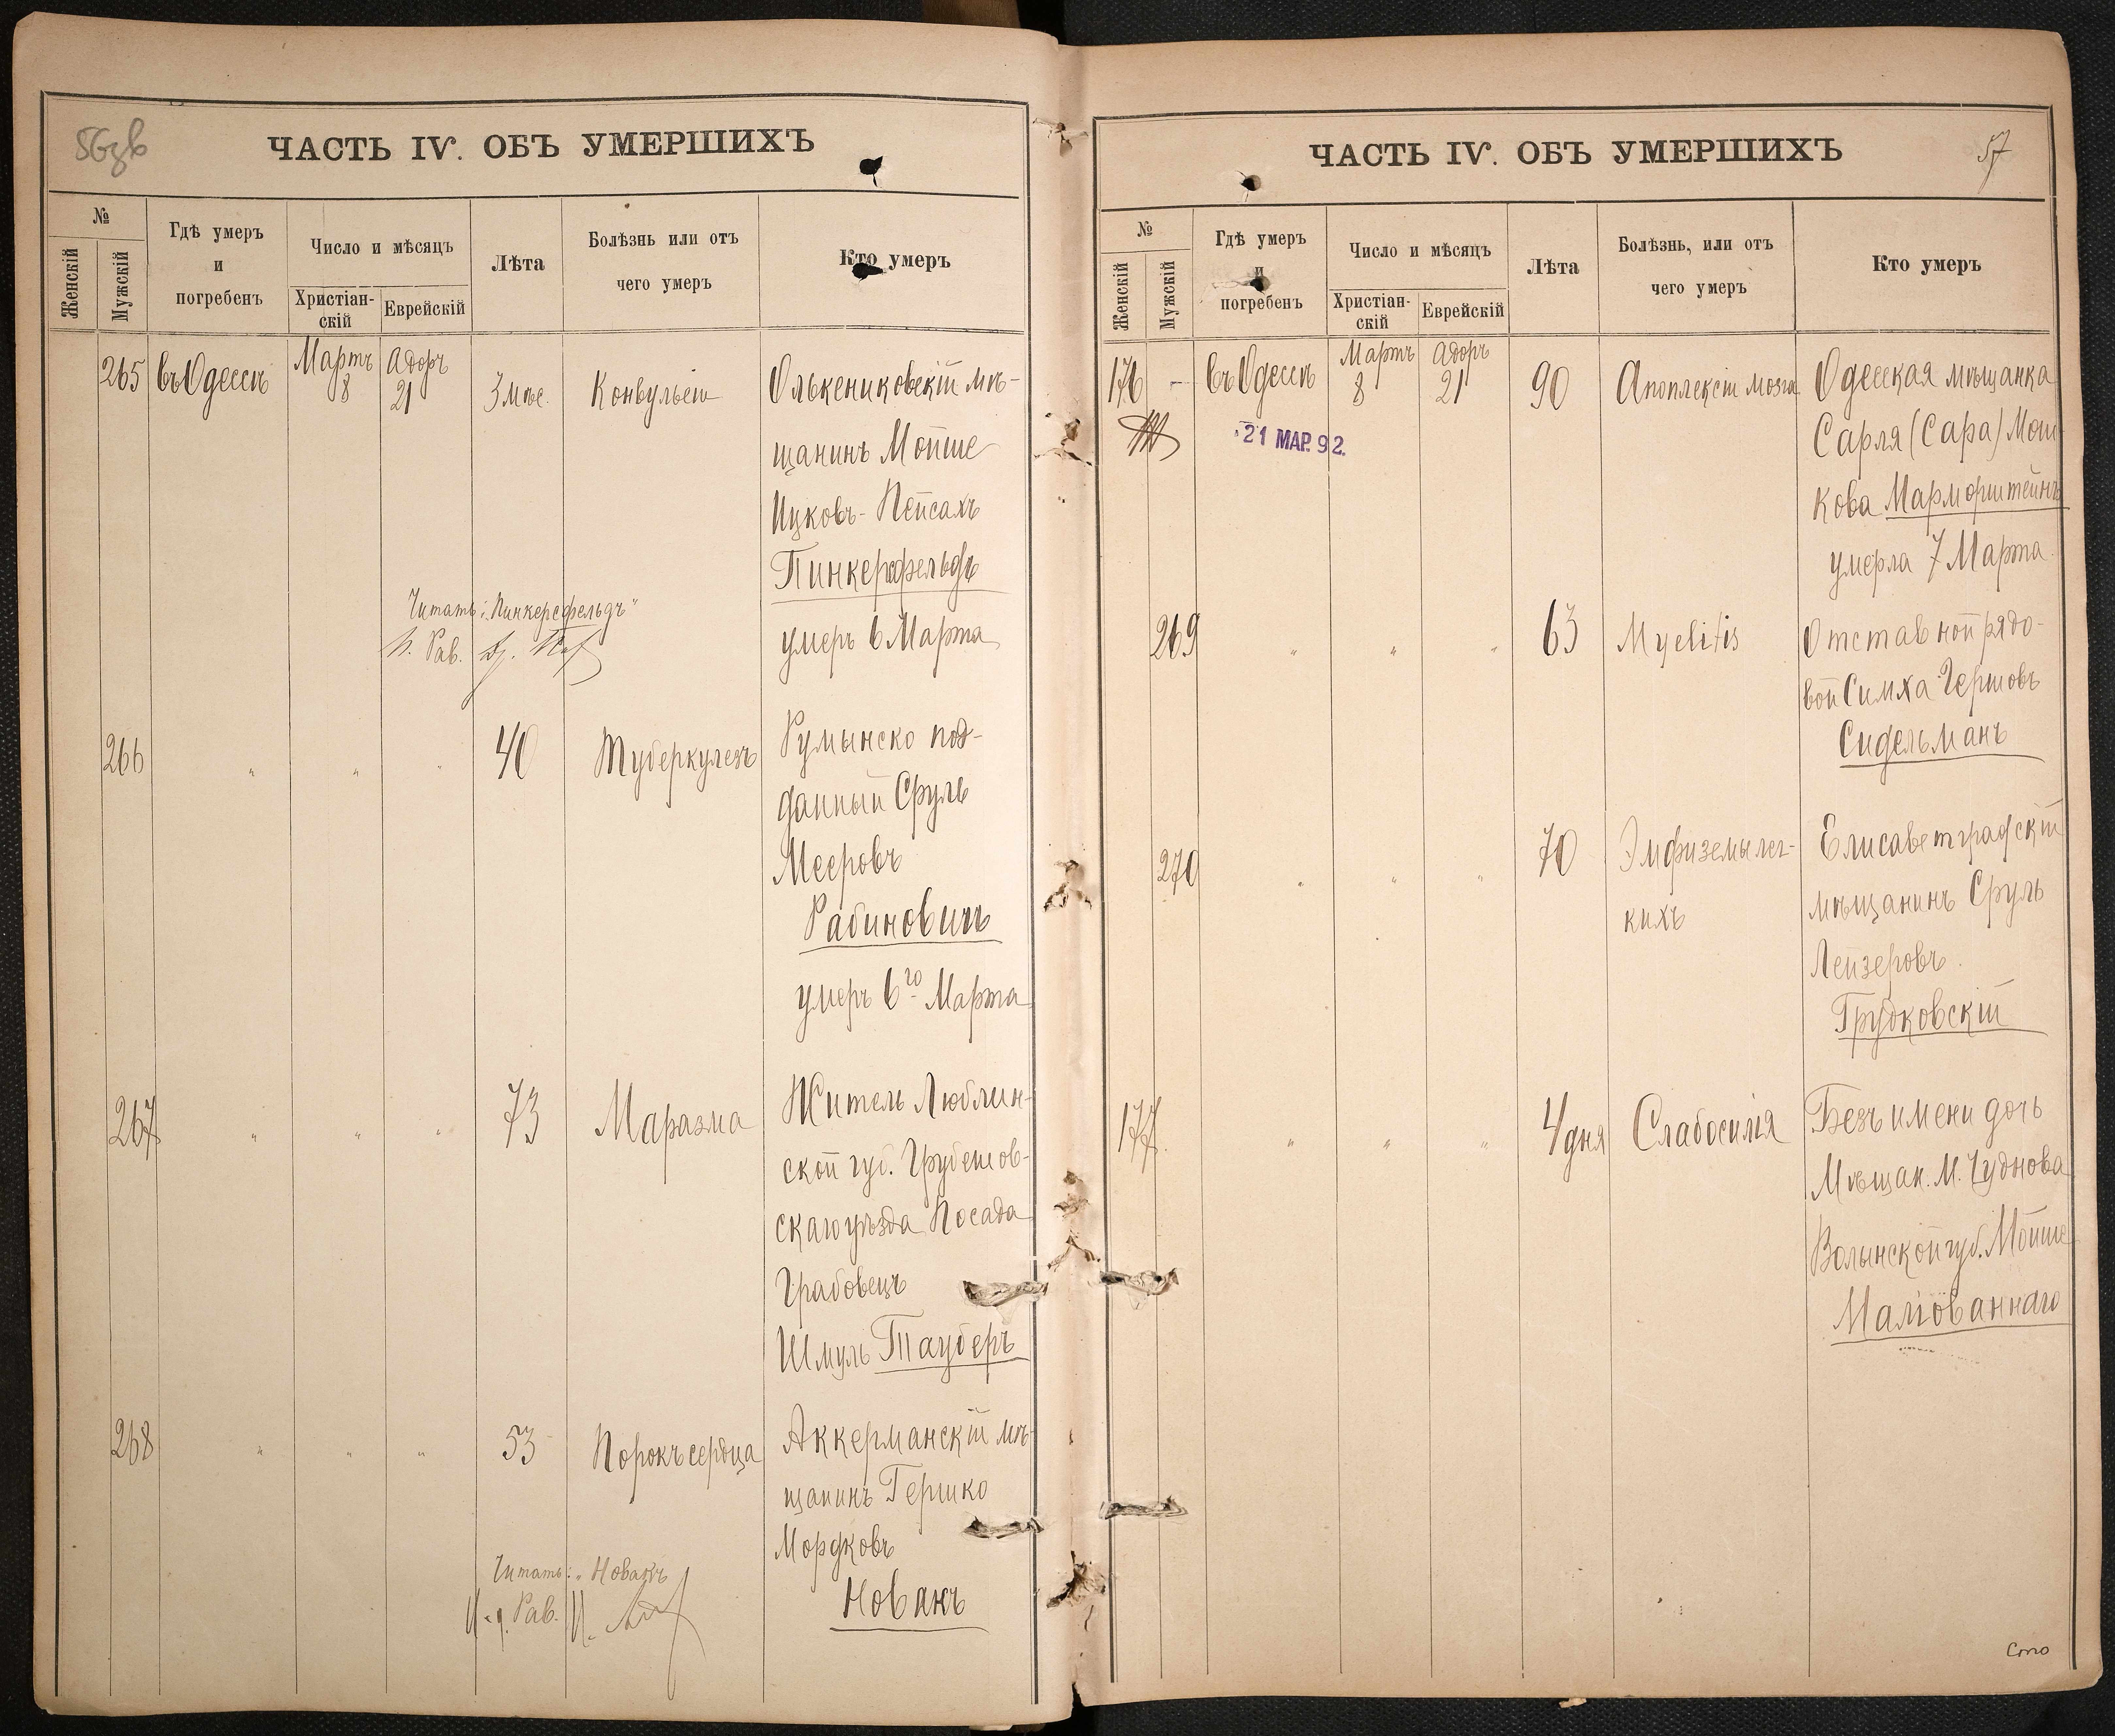 56зв
ЧАСТЬ IV. ОБЪ УМЕРШИХЪ
№
Женскій
Мужскій
Гдѣ умеръ
и
погребенъ
Число и мѣсяцъ
Христіан-
скій
Еврейскій
Лѣта
Болѣзнь или отъ
чего умеръ
Кто умеръ
265 въ Одессѣ Мартъ 8 Адоръ 21 3 мѣс. Конвульсіи Олькениковскій мѣ-
щанинъ Мойше
Ицковъ-Пейсахъ
Пинкерсфельдъ
умеръ 6 Марта
Читать: „Пинкерсфельдъ“
Рав.
266 " " " 40 Туберкулезъ Румынско под-
данный Сруль
Мееровъ
Рабиновичъ
умеръ 6го Марта
267 " " " 73 Маразма Житель Люблин-
ской губ. Грубешов-
скаго уѣзда Посада
Грабовецъ
Шмуль Тауберъ
268 " " " 53 Порокъ сердца Аккерманскій мѣ-
щанинъ Гершко
Мордковъ
Новакъ
Читать: „Новакъ
И. д. Рав.
57
ЧАСТЬ IV. ОБЪ УМЕРШИХЪ
№
Женскій
Мужскій
Гдѣ умеръ
и
погребенъ
Число и мѣсяцъ
Христіан-
скій
Еврейскій
Лѣта
Болѣзнь, или отъ
чего умеръ
Кто умеръ
176 – въ Одессѣ Мартъ 8 Адоръ 21 90 Апоплексіи мозга Одесская мѣщанка
21 МАР. 92.
Сарля (Сара) Мош-
кова Марморштейнъ
умерла 7 Марта
269 " " " 63 Myelitis Отставной рядо-
вой Симха Гершовъ
Сидельманъ
270 " " " 70 Эмфиземы лег-
кихъ
Елисаветградскій
мѣщанинъ Сруль
Лейзеровъ
Грудковскій
177 " " " 4 дня Слабосилія Безъ имени дочь
Мѣщан. М. Чуднова
Волынской губ. Мойше
Малiованнаго
Сто